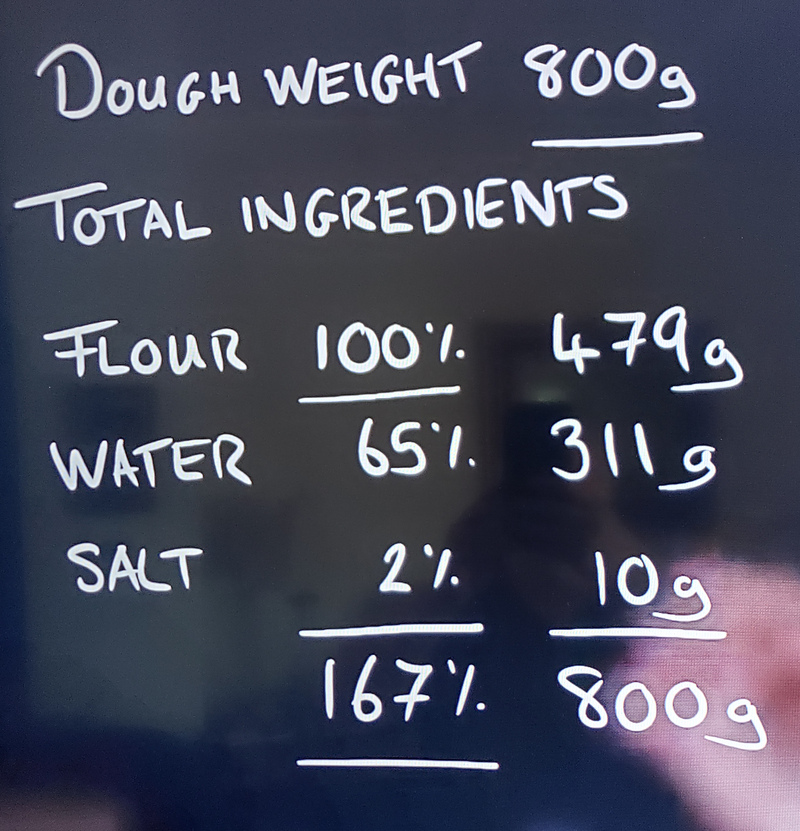 DOUGH WEIGHT 800g
TOTAL INGREDIENTS
FLOUR 100% 479g
WATER 65% 311g
SALT 2% 10g
167% 800g